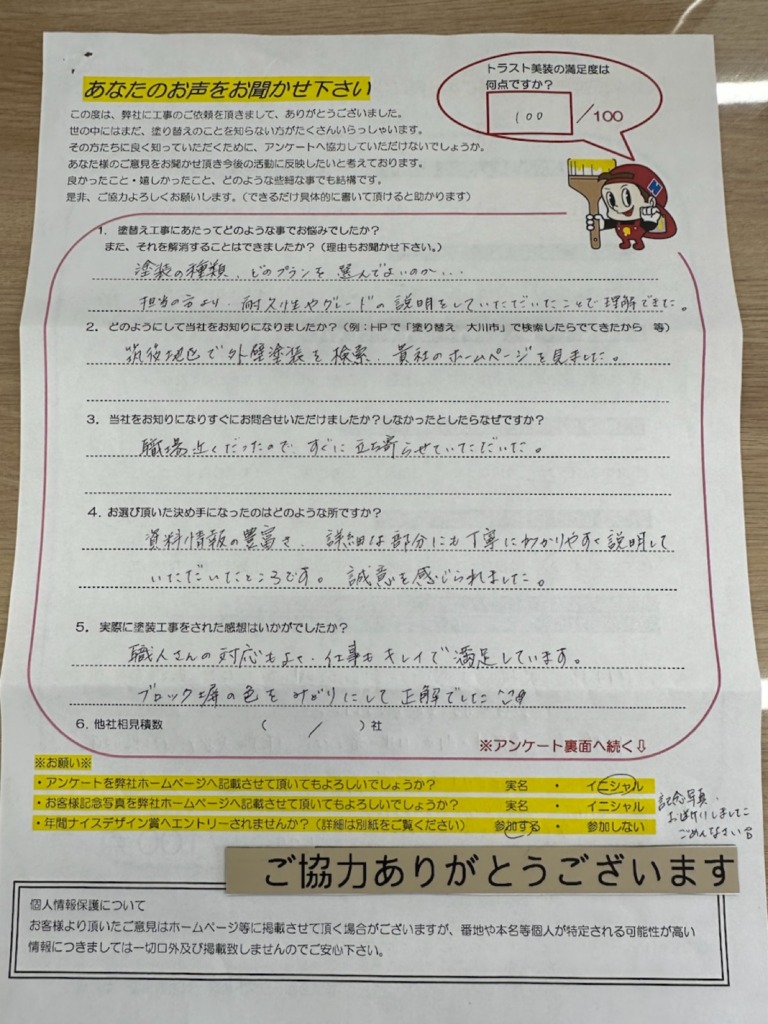 あなたのお声をお聞かせ下さい
トラスト美装の満足度は
何点ですか?
100 /100
この度は、弊社に工事のご依頼を頂きまして、ありがとうございました。
世の中にはまだ、塗り替えのことを知らない方がたくさんいらっしゃいます。
その方たちに良く知っていただくために、アンケートへ協力していただけないでしょうか。
あなた様のご意見をお聞かせ頂き今後の活動に反映したいと考えております。
良かったこと・嬉しかったこと、どのような些細な事でも結構です。
是非、ご協力よろしくお願いします。(できるだけ具体的に書いて頂けると助かります)
N
1. 塗替え工事にあたってどのような事でお悩みでしたか?
また、それを解消することはできましたか?(理由もお聞かせ下さい。)
塗装の種類、どのプランを選んでよいのか...
担当の方より、耐久性やグレードの説明をしていただいたことで理解できた。
2. どのようにして当社をお知りになりましたか?(例:HPで「塗り替え 大川市」で検索したらでてきたから 等)
筑後地区で外壁塗装を検索、貴社のホームページを見ました。
3. 当社をお知りになりすぐにお問合せいただけましたか?しなかったとしたらなぜですか?
職場近くだったので、すぐに立ち寄らせていただいた。
4. お選び頂いた決め手になったのはどのような所ですか?
資料情報の豊富さ、詳細な部分にも丁寧にわかりやすく説明して
いただいたところです。誠意を感じられました。
5. 実際に塗装工事をされた感想はいかがでしたか?
職人さんの対応もよく、仕事もキレイで満足しています。
ブロック塀の色を にして正解でした
6. 他社相見積数 ( / )社
※アンケート裏面へ続く⇩
※お願い※
・アンケートを弊社ホームページへ記載させて頂いてもよろしいでしょうか? 実名 ・ イニシャル
・お客様記念写真を弊社ホームページへ記載させて頂いてもよろしいでしょうか? 実名 ・ イニシャル
・年間ナイスデザイン賞へエントリーされませんか?(詳細は別紙をご覧ください) 参加する ・ 参加しない
記念写真、
お断りしました
ごめんなさい
ご協力ありがとうございます
個人情報保護について
お客様より頂いたご意見はホームページ等に掲載させて頂く場合がございますが、番地や本名等個人が特定される可能性が高い
情報につきましては一切口外及び掲載致しませんのでご安心下さい。